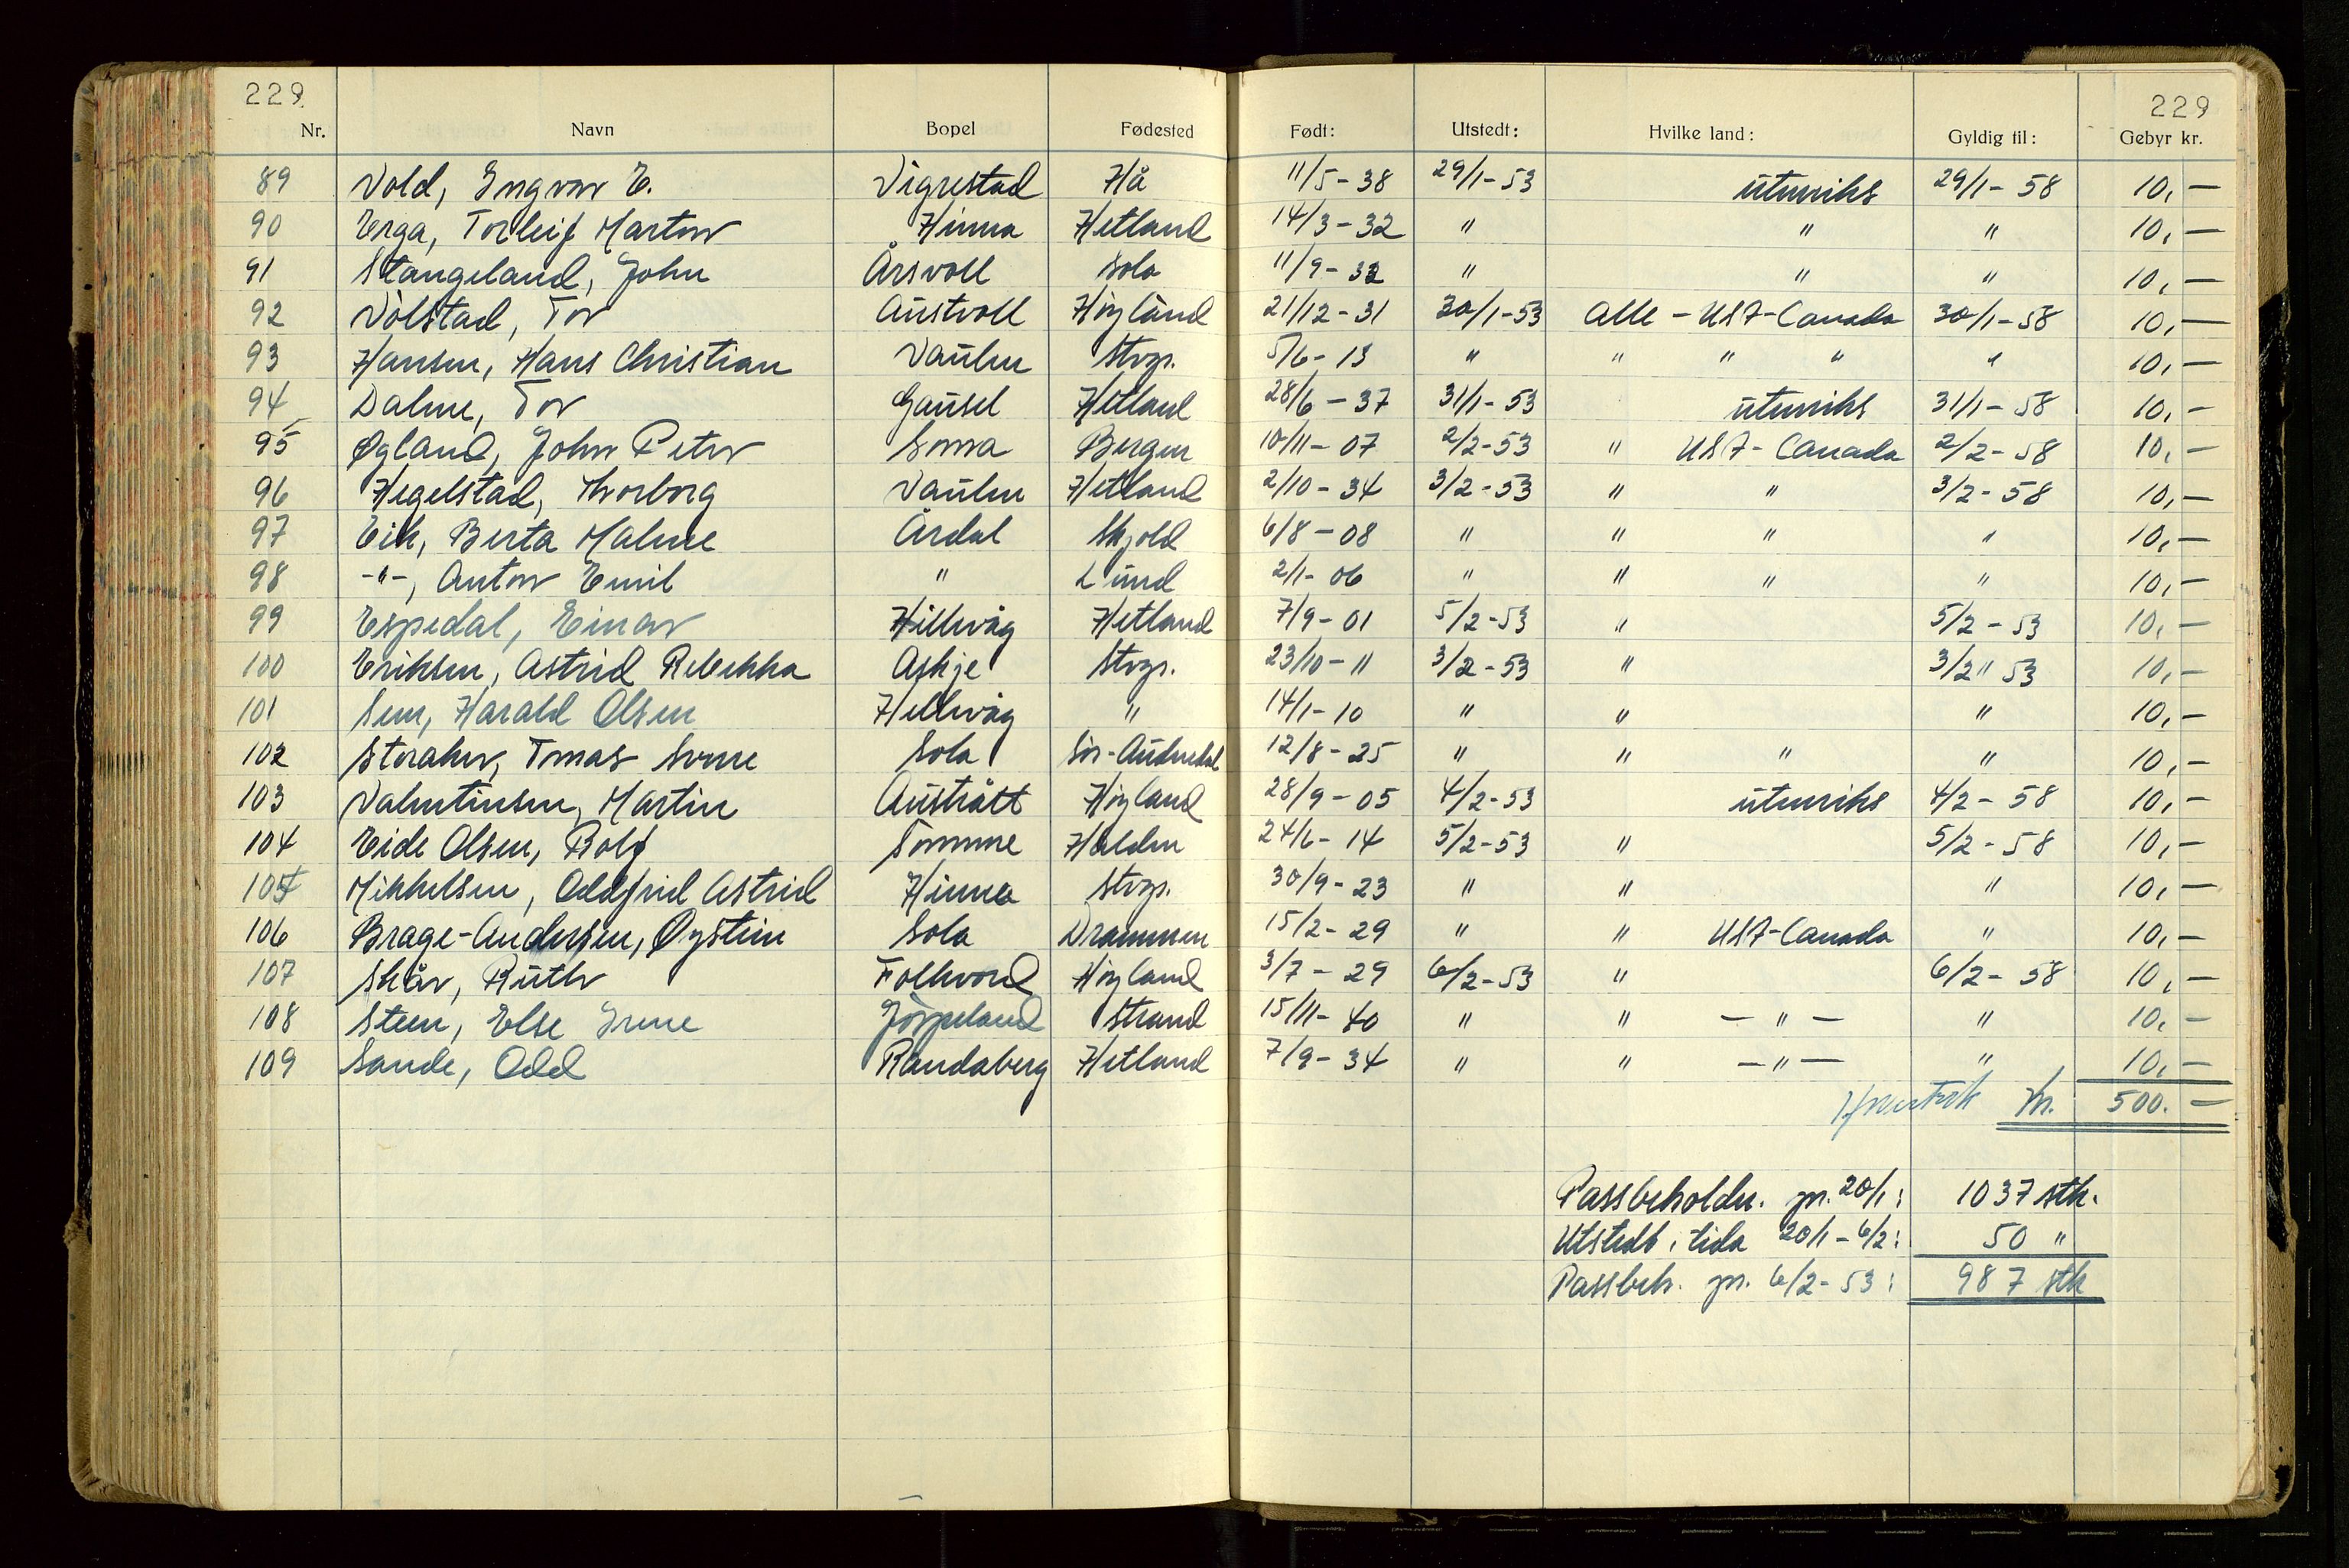 229 229
Nr. Navn Bopel Fødested Født: Utstedt: Hvilke land: Gyldig til: Gebyr kr.
89 Vold, Ingvar E. Vigrestad Hå 11/5-38 29/1-53 utenriks 29/1-58 10,-
90 Erga, Torleif Marton Hinna Hetland 14/3-32 " " " 10,-
91 Stangeland, John Årsvoll Sola 11/9-32 " " " 10,-
92 Volstad, Tor Austvoll Høyland 21/12-31 30/1-53 Alle - USA-Canada 30/1-58 10,-
93 Hansen, Hans Christian Vaulen Stvgr. 5/6-13 " " " " " 10,-
94 Dalene, Tor Gausel Hetland 28/6-37 31/1-53 utenriks 31/1-58 10,-
95 Øgland, John Peter Soma Bergen 10/11-07 2/2-53 " USA-Canada 2/2-58 10,-
96 Hegelstad, Thorborg Vaulen Hetland 2/10-34 3/2-53 " " 3/2-58 10,-
97 Eik, Berta Malene Årdal Skjold 6/8-08 " " " " 10,-
98 -"-, Anton Emil " Lund 2/1-06 " " " " 10,-
99 Espedal, Einar Hillevåg Hetland 7/9-01 5/2-53 " 5/2-53 10,-
100 Eriksen, Astrid Rebekka Askje Stvgr. 23/10-11 3/2-53 " 3/2 " 53 10,-
101 Sem, Harald Olsen Hillevåg " 14/1-10 " " " 10,-
102 Storaker, Tomas Sverre Sola Sør-Audnedal 12/8-25 " " " " 10,-
103 Valentinsen, Martin Austrått Høyland 28/9-05 4/2-53 utenriks 4/2-58 10,-
104 Eide Olsen, Rolf Sømme Halden 24/6-14 5/2-53 " 5/2-58 10,-
105 Mikkelsen, Oddfrid Astrid Hinna Stvgr. 30/9-23 " " " 10,-
106 Brage-Andersen, Øystein Sola Drammen 15/2-29 " " USA-Canada " 10,-
107 Skår, Ruth Folkvord Høyland 3/7-29 6/2-53 " 6/2-58 10,-
108 Steen, Else Irene Jørpeland Strand 15/11-40 " " -"- " 10,-
109 Sande, Odd Randaberg Hetland 7/9-34 " " -"- " 10,-
kr. 500.-
Passbeholdn. pr. 20/1: 1037 stk.
Utstedt i tida 20/1-6/2: 50 "
Passbeh. pr. 6/2-53: 987 stk